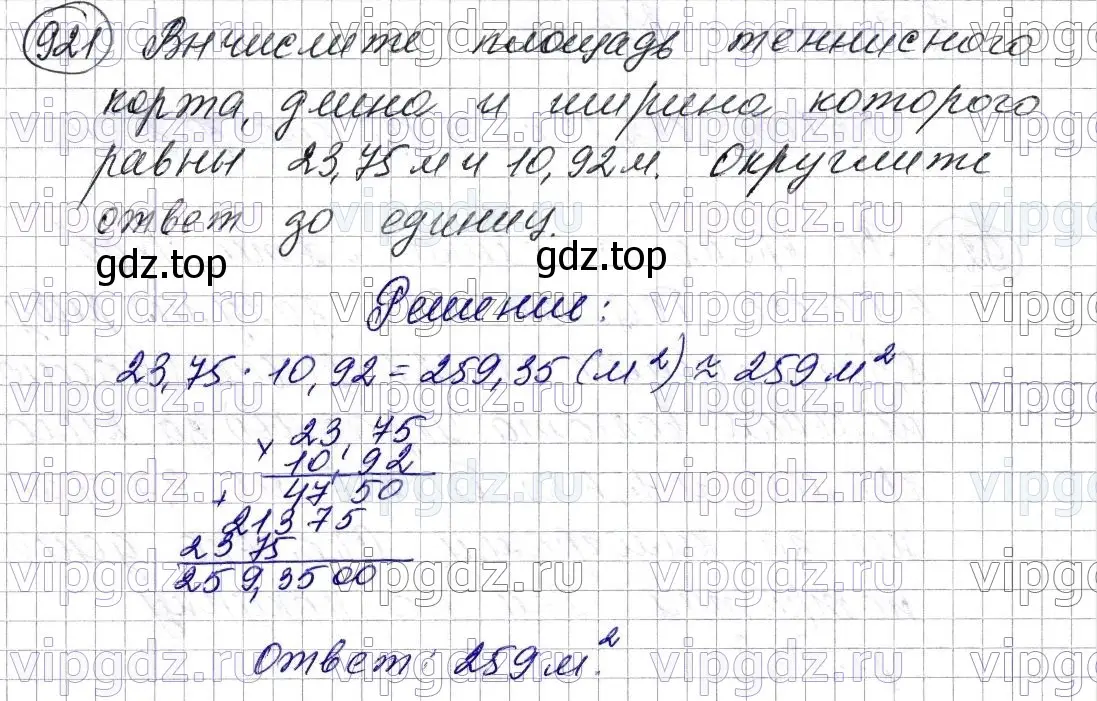 921 Вычислите площадь теннисного
корта, длина и ширина которого
равны 23,75 м и 10,92 м. Округлите
ответ до единиц.
gdz.top gdz.top
Решение:
23,75 · 10,92 = 259,35 (м²) ≈ 259 м²
× 23,75
10,92
+ 47 50
213 75
23 75
259,3500
Ответ: 259 м².
vipgdz.ru